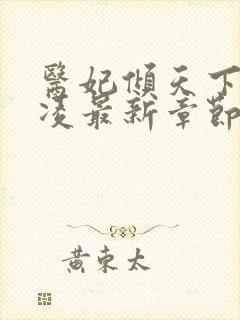 醫妃傾天下
凌最新章節
黃東太